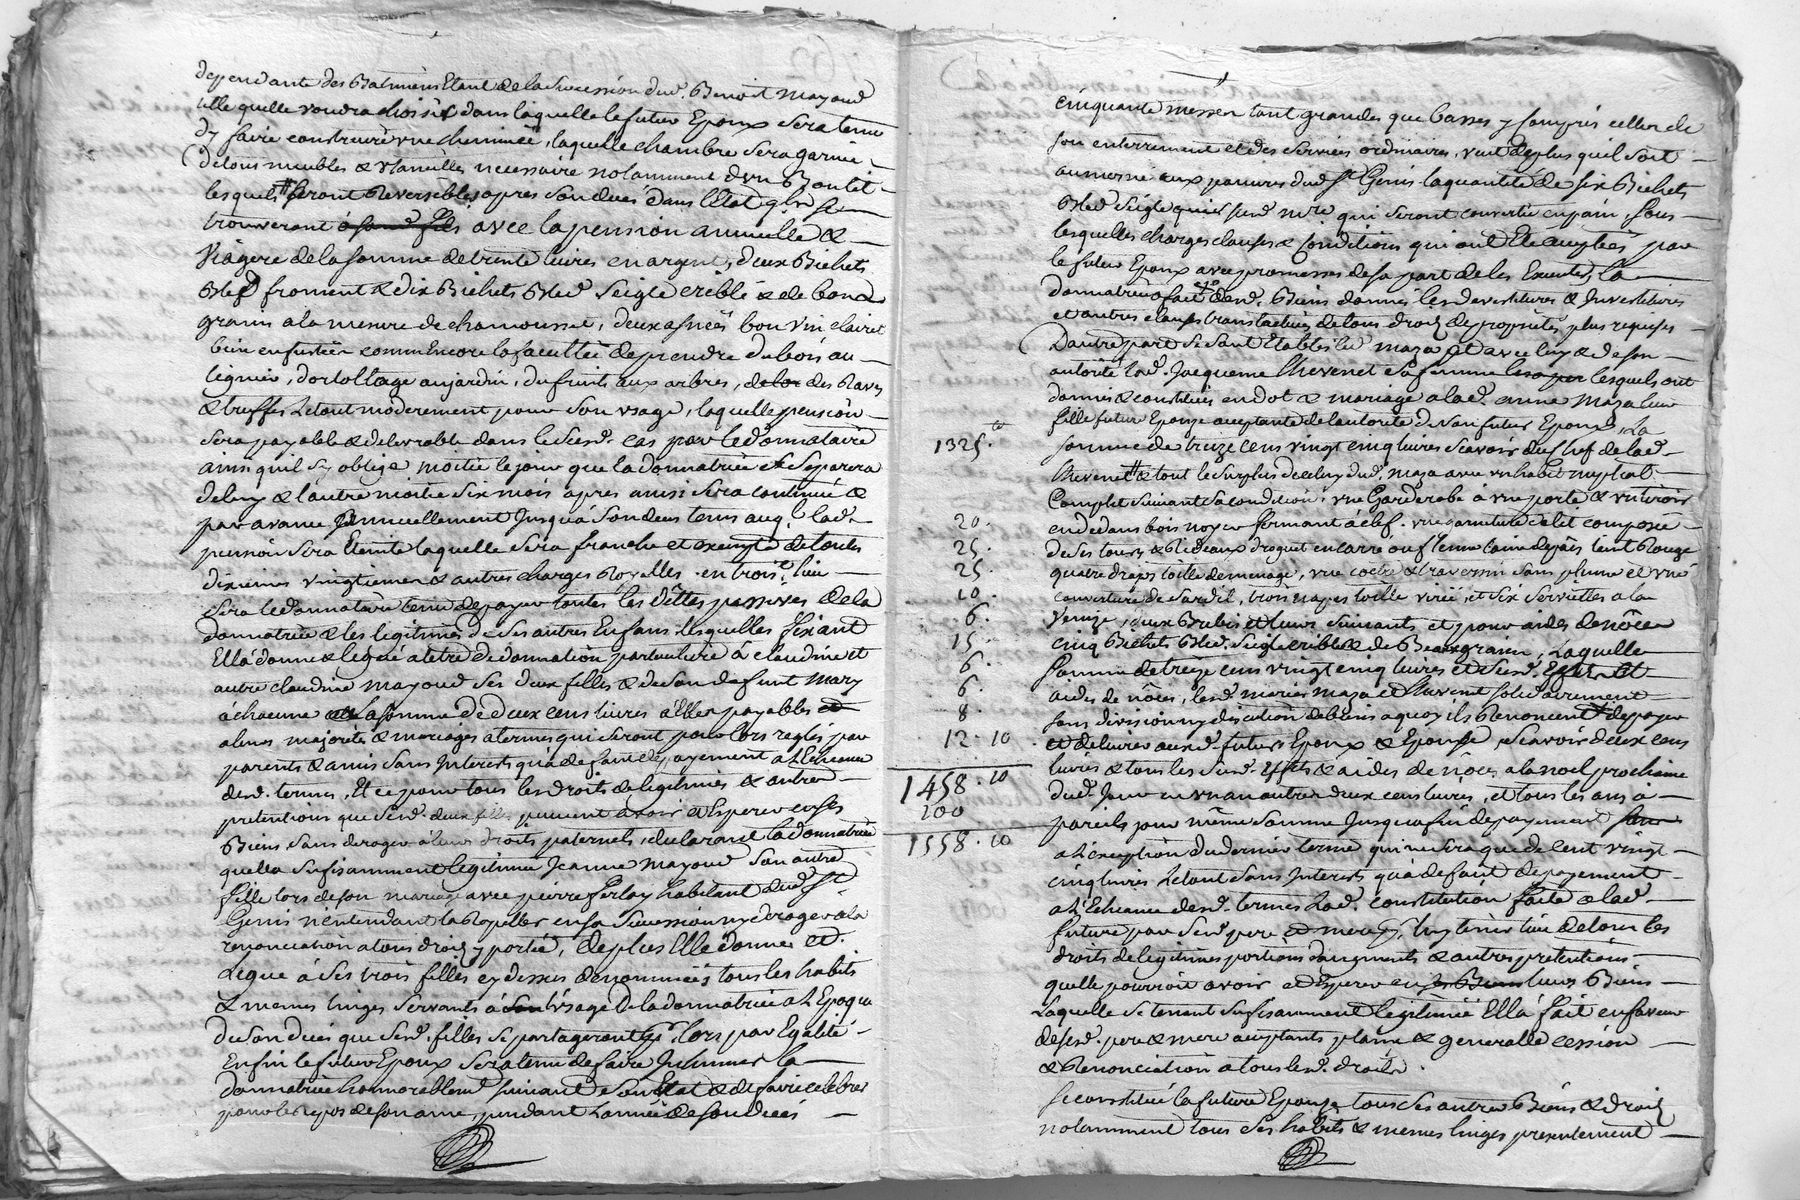 dependante des Batimens Etant de la Succession dud. Benoit mayoud
telle quelle voudra choisir dans laquelle le futur Epoux sera tenu
dy faire construire une cheminée, laquelle chambre sera garnie
de tous meubles & Ustancilles necessaire notamment d'un Bon lit
lesquels seront Reversibles apres son deces dans l'Etat qils se
trouveront avec la pension annuelle &
Viagere de la somme de trente livres en argent, deux Bichets
Bled froment & dix Bichets Bled Seigle criblé & de bond
grains a la mesure de chamousset, deux asnées bon vin clairet
bien enfustée comm'Encore la faculttée de prendre du bois au
lignier, d'ortollage au jardin, du fruits aux arbres, des Raves
& truffes le tout moderement pour son usage, laquelle pension
sera payable & delivrable dans le susd. cas par le donnataire
ainsi quil s'y oblige moitié le jour que la donnatrice se separera
de luy & l'autre moitié six mois apres ainsi sera continué &
par avance annuellement jusqu'a son deces tems auq.l lad.
pension sera Eteinte laquelle sera franche et exempte de toutes
dixiemes vingtiemes & autres charges Royalles. en trois.e lieu
sera le donnataire tenu de payer toutes les dettes passives de la
donnatrice & les legitimes de ses autres Enfans lesquelles fixant
Ella donne & legue a titre de donnation particuliere à claudine et
autre claudine mayoud ses deux filles & de son defunt mary
à chacune la somme de deux cens livres à Elles payables
a leurs majorités & mariages a termes qui seront pour lors reglés par
parents & amis sans Interets qu'a defaut de payement a l'Echeance
desd. termes, Et ce pour tous les droits de legitimes & autres
pretentions que sesd. deux filles peuvent avoir et Esperer en ses
Biens, sans deroger à leurs droits paternels, declarant la donnatrice
quelle a sufisamment legitimée Jeanne mayoud son autre
fille lors de son mariage avec pierre Ferlay habitant dud. St
Genis n'entendant la Rapeller en sa succession ny deroger a la
renonciation a tous droits y portée, de plus Elle donne et
Legue à ses trois filles cy dessus denommées tous les habits
& memes linges servants à l'usage de la donnatrice a l'Epoque
de son deces que sesd. filles se partageront p.r lors par Egalité
Enfin le futur Epoux sera tenu de faire Inhumer la
donnatrice honnorablem.t suivant son Etat & de faire celebrer
pour le repos de son ame, pendant l'année de son deces
cinquante messes tant grandes que basses y compris celles de
son enterrement et des services ordinaires, veut de plus quil soit
aumoné aux pauvres dud. St Genis la quantité de six Bichets
Bled Seigle qui seront convertis en pain, sous
lesquelles charges clauses & conditions qui ont été acceptées par
le futur Epoux avec promesses de sa part de les Executer, la
donnatrice a fait desd. Biens donnés les devestitures & Investitures
et autres clauses translatives de tous droits de proprietés plus requises
D'autre part se sont Etablis led. maza et avec luy & de son
autorité lad. Jacqueme Chevenet sa femme lesquels ont
donnés & constitués en dot & mariage a lad. anne Maza leur
fille future Epouze acceptante de l'autorité de son futur Epoux, La
1325.tt somme de treize cens vingt cinq livres scavoir du chef de lad.
Chevenet & tout le surplus de celuy dud. maza avec un habit nuptial
Complet suivant sa condition, une Garderobe à une porte & un tiroir
20. en dedans bois noyer fermant à clef. une garniture de lit composé
25. de ses tours & Rideaux droguet en carré teint Rouge
25. quatre draps toille de menage, une coetre & traversin sans plume et une
10. couverture de Sardit, trois napes toille et six serviettes a la
6. Venize, deux Brebis et leurs suivants et pour aides de nôces
15. cinq Bichets Bled. Seigle criblé & de Beau grain, Laquelle
6. somme de treize cens vingt cinq livres et susd. Effets Et
6. aides de nôces, lesd. mariés maza et Chevenet solidairement
8. sans division ny discution de biens a quoy ils Renoncent de payer
12.10 et delivrer auxd. futurs Epoux & Epouse, scavoir deux cens
1458.10 livres & tous les susd. Effets & aides de nôces a la noel prochaine
100 dud. Jour en un an autres deux cens livres, et tous les ans a
1558.10 pareils jour même somme jusqu'a fin de payement
a l'exception du dernier terme qui ne sera que de cent vingt
cinq livres le tout sans Interets qu'a defaut de payement
a l'Echeance desd. termes Lad. constitution faite a lad.
future par sesd. pere et mere luy tenir lieu de tous les
droits de legitimes portions d'augments & autres pretentions
quelle pourroit avoir et Esperer en leurs Biens
Laquelle se tenant sufisamment legitimée Ella fait en faveur
de sesd. pere & mere acceptants plaine & generalle cession
& Renonciation a tous lesd. droits.
Se constitué la future Epouze tous ses autres Biens & droits
notamment tous ses habits & memes linges presentement